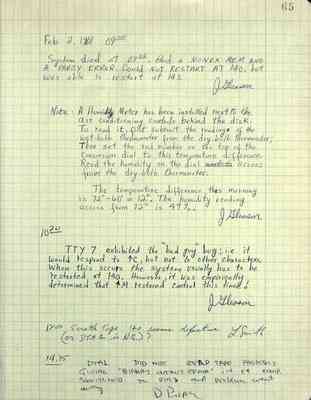 65
Feb 2, 1981 09⁰⁰
System died at 0700. Had a NONEX MEM AND
A PARITY ERROR. Could NOT RESTART AT 140, but
was able to restart at 145.
J Gleason
Note: A Humidity Meter has been installed next to the
air conditioning controls behind the disk.
To read it, first subtract the readings of the
wet-bulb thermometer from the dry-bulb thermometer;
Then set the 2nd number on the top of the
conversion dial to this temperature difference.
Read the humidity on the dial across
from the dry-bulb thermometer.
The temperature difference this morning
is 72°-60° = 12°. The humidity reading
across from 72° is 49%.
J Gleason
10²⁰
TTY 7 exhibited the "bad guy" bug; i.e. it
would respond to ↑C, but not to other characters.
When this occurs the system usually has to be
restarted, at 140. However, it was empirically
determined that ↑M restored control this time!
J Gleason
Scratch Tape the same defective L Smith
(on DTA6 in N.G.)?
14:15 DTA2 DID NOT READ TAPE PROPERLY
GIVING "BINARY OUTPUT ERROR"
D Pilat